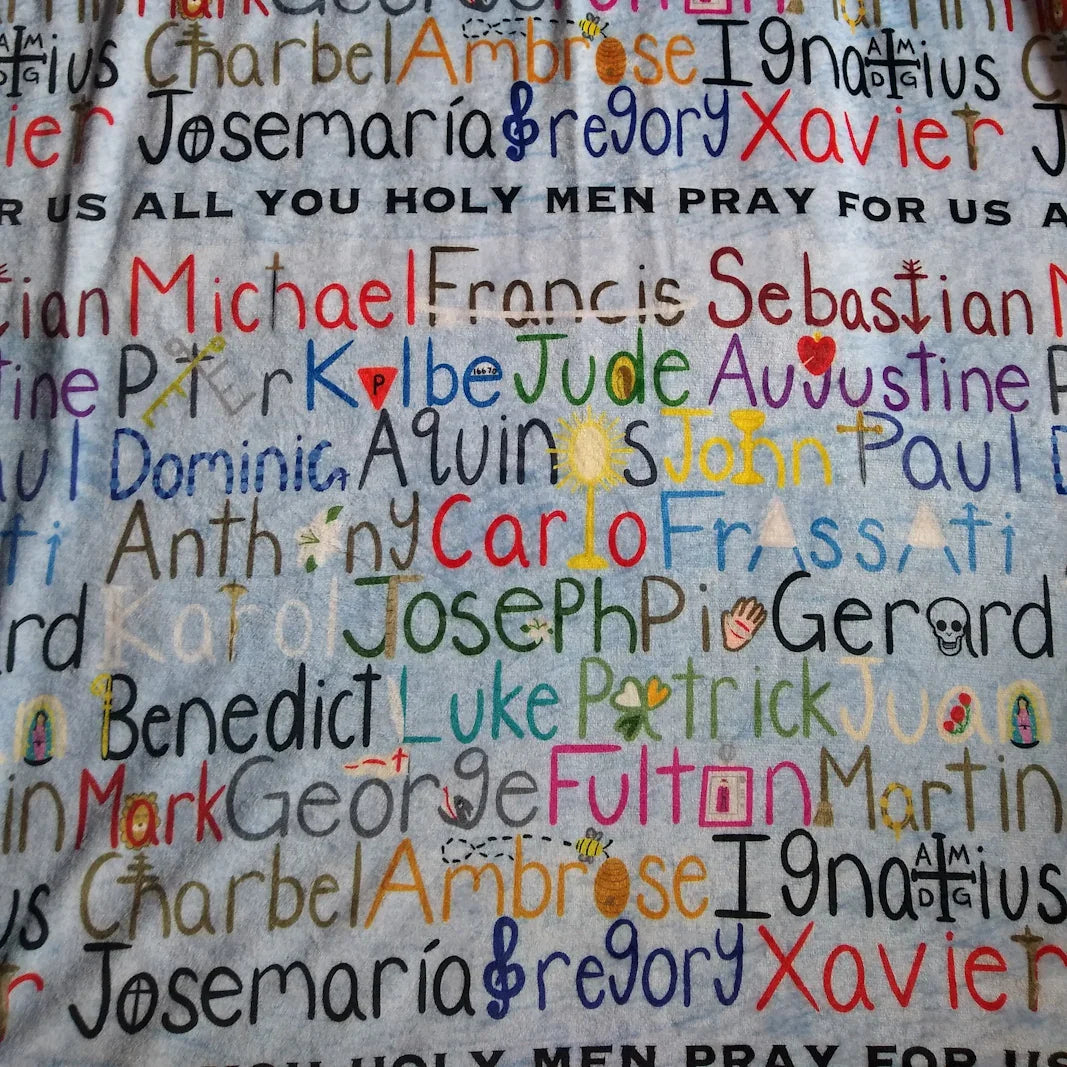 Mark George Fulton Martin
ius Charbel Ambrose Ignatius C
AM DG AM DG
ier Josemaría Gregory Xavier J
R US ALL YOU HOLY MEN PRAY FOR US A
tian Michael Francis Sebastian M
tine Peter Kolbe Jude Augustine P
P 16670
aul Dominic Aquinas John Paul D
ti Anthony Carlo Frassati
rd Karol Joseph Pio Gerard
n Benedict Luke Patrick Juan
in Mark George Fulton Martin
us Charbel Ambrose Ignatius
AM DG
r Josemaría Gregory Xavier
YOU HOLY MEN PRAY FOR US